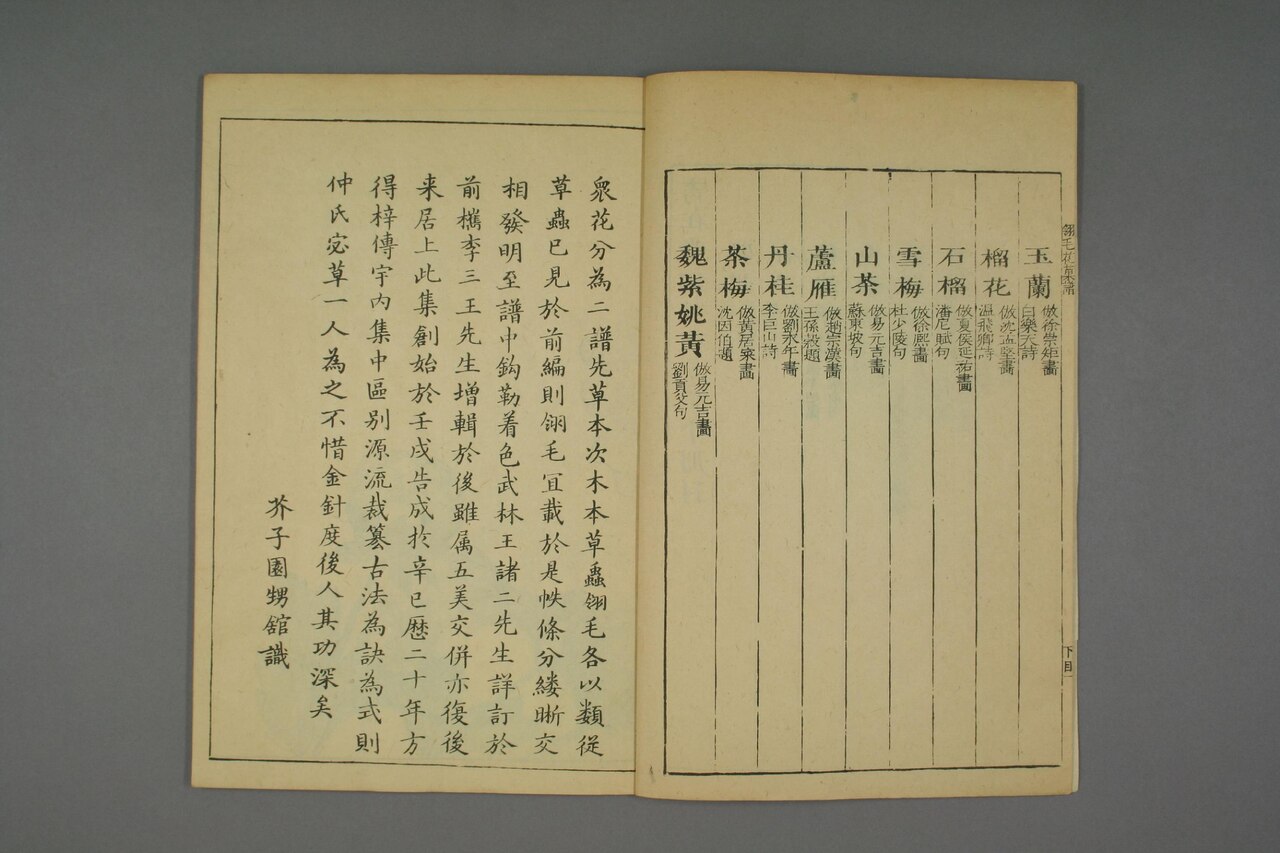 翎毛花卉譜
玉蘭 倣徐崇矩畫 白樂天詩
榴花 倣沈孟堅畫 溫飛卿詩
石榴 倣夏侯延祐畫 潘尼賦句
雪梅 倣徐熙畫 杜少陵句
山茶 倣易元吉畫 蘇東坡句
蘆雁 倣趙宗漢畫 王孫穀題
丹桂 倣劉永年畫 李巨山詩
茶梅 倣黃居寀畫 沈因伯題
魏紫姚黃 倣易元吉畫 劉貢父句
下目一
衆花分為二譜先草本次木本草蟲翎毛各以類從
草蟲已見於前編則翎毛宜載於是帙條分縷晰交
相發明至譜中鈎勒着色武林王諸二先生詳訂於
前檇李三王先生增輯於後雖属五美交併亦復後
来居上此集創始於壬戌告成於辛巳歷二十年方
得梓傳宇内集中區别源流裁纂古法為訣為式則
仲氏宓草一人為之不惜金針度後人其功深矣
芥子園甥舘識